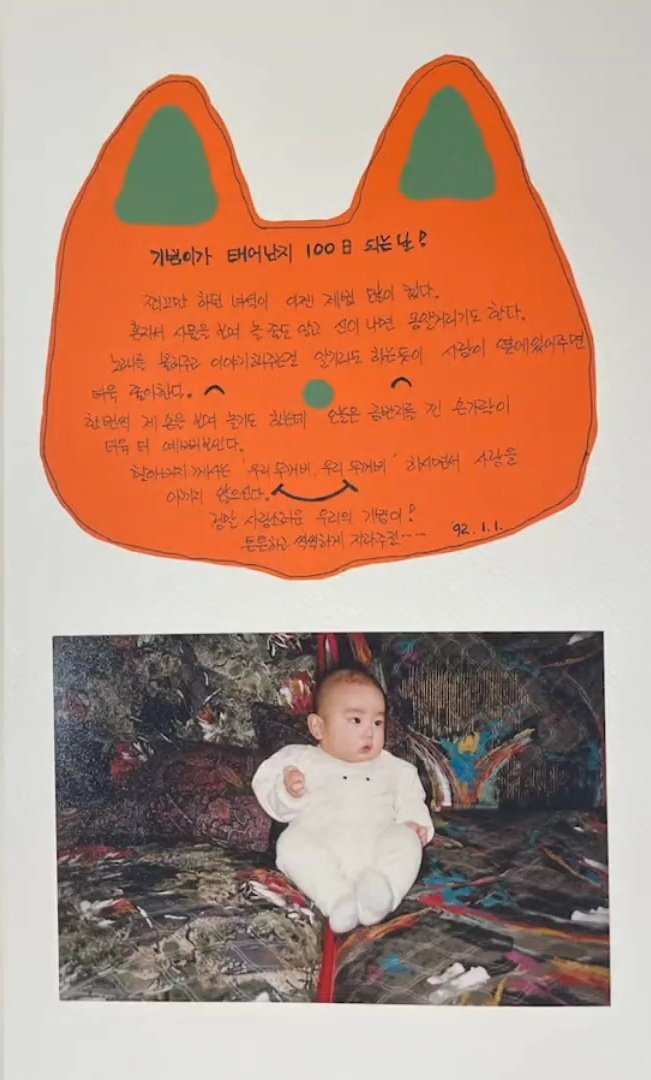 기범이가 태어난지 100日 되는 날!
하던 녀석이 이젠 제법 많이 컸다.
혼자서 사물을 보며 놀 줄도 알고 신이 나면 옹알거리기도 한다.
노래를 불러주고 이야기해주는걸 알기라도 하는듯이 사람이 옆에 있어주면
더욱 좋아한다.
한번씩 제 손을 보며 놀기도 하는데 오늘은 금반지를 낀 손가락이
더욱 더 예뻐보인다.
할아버지께서는 "우리 두꺼비, 우리 두꺼비" 하시면서 사랑을
아끼지 않으신다.
정말 사랑스러운 우리의 기범이!
튼튼하고 씩씩하게 자라주렴---
92.1.1.